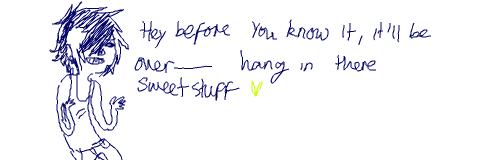 Hey before You know it, it'll be
over—— hang in there
Sweet stuff